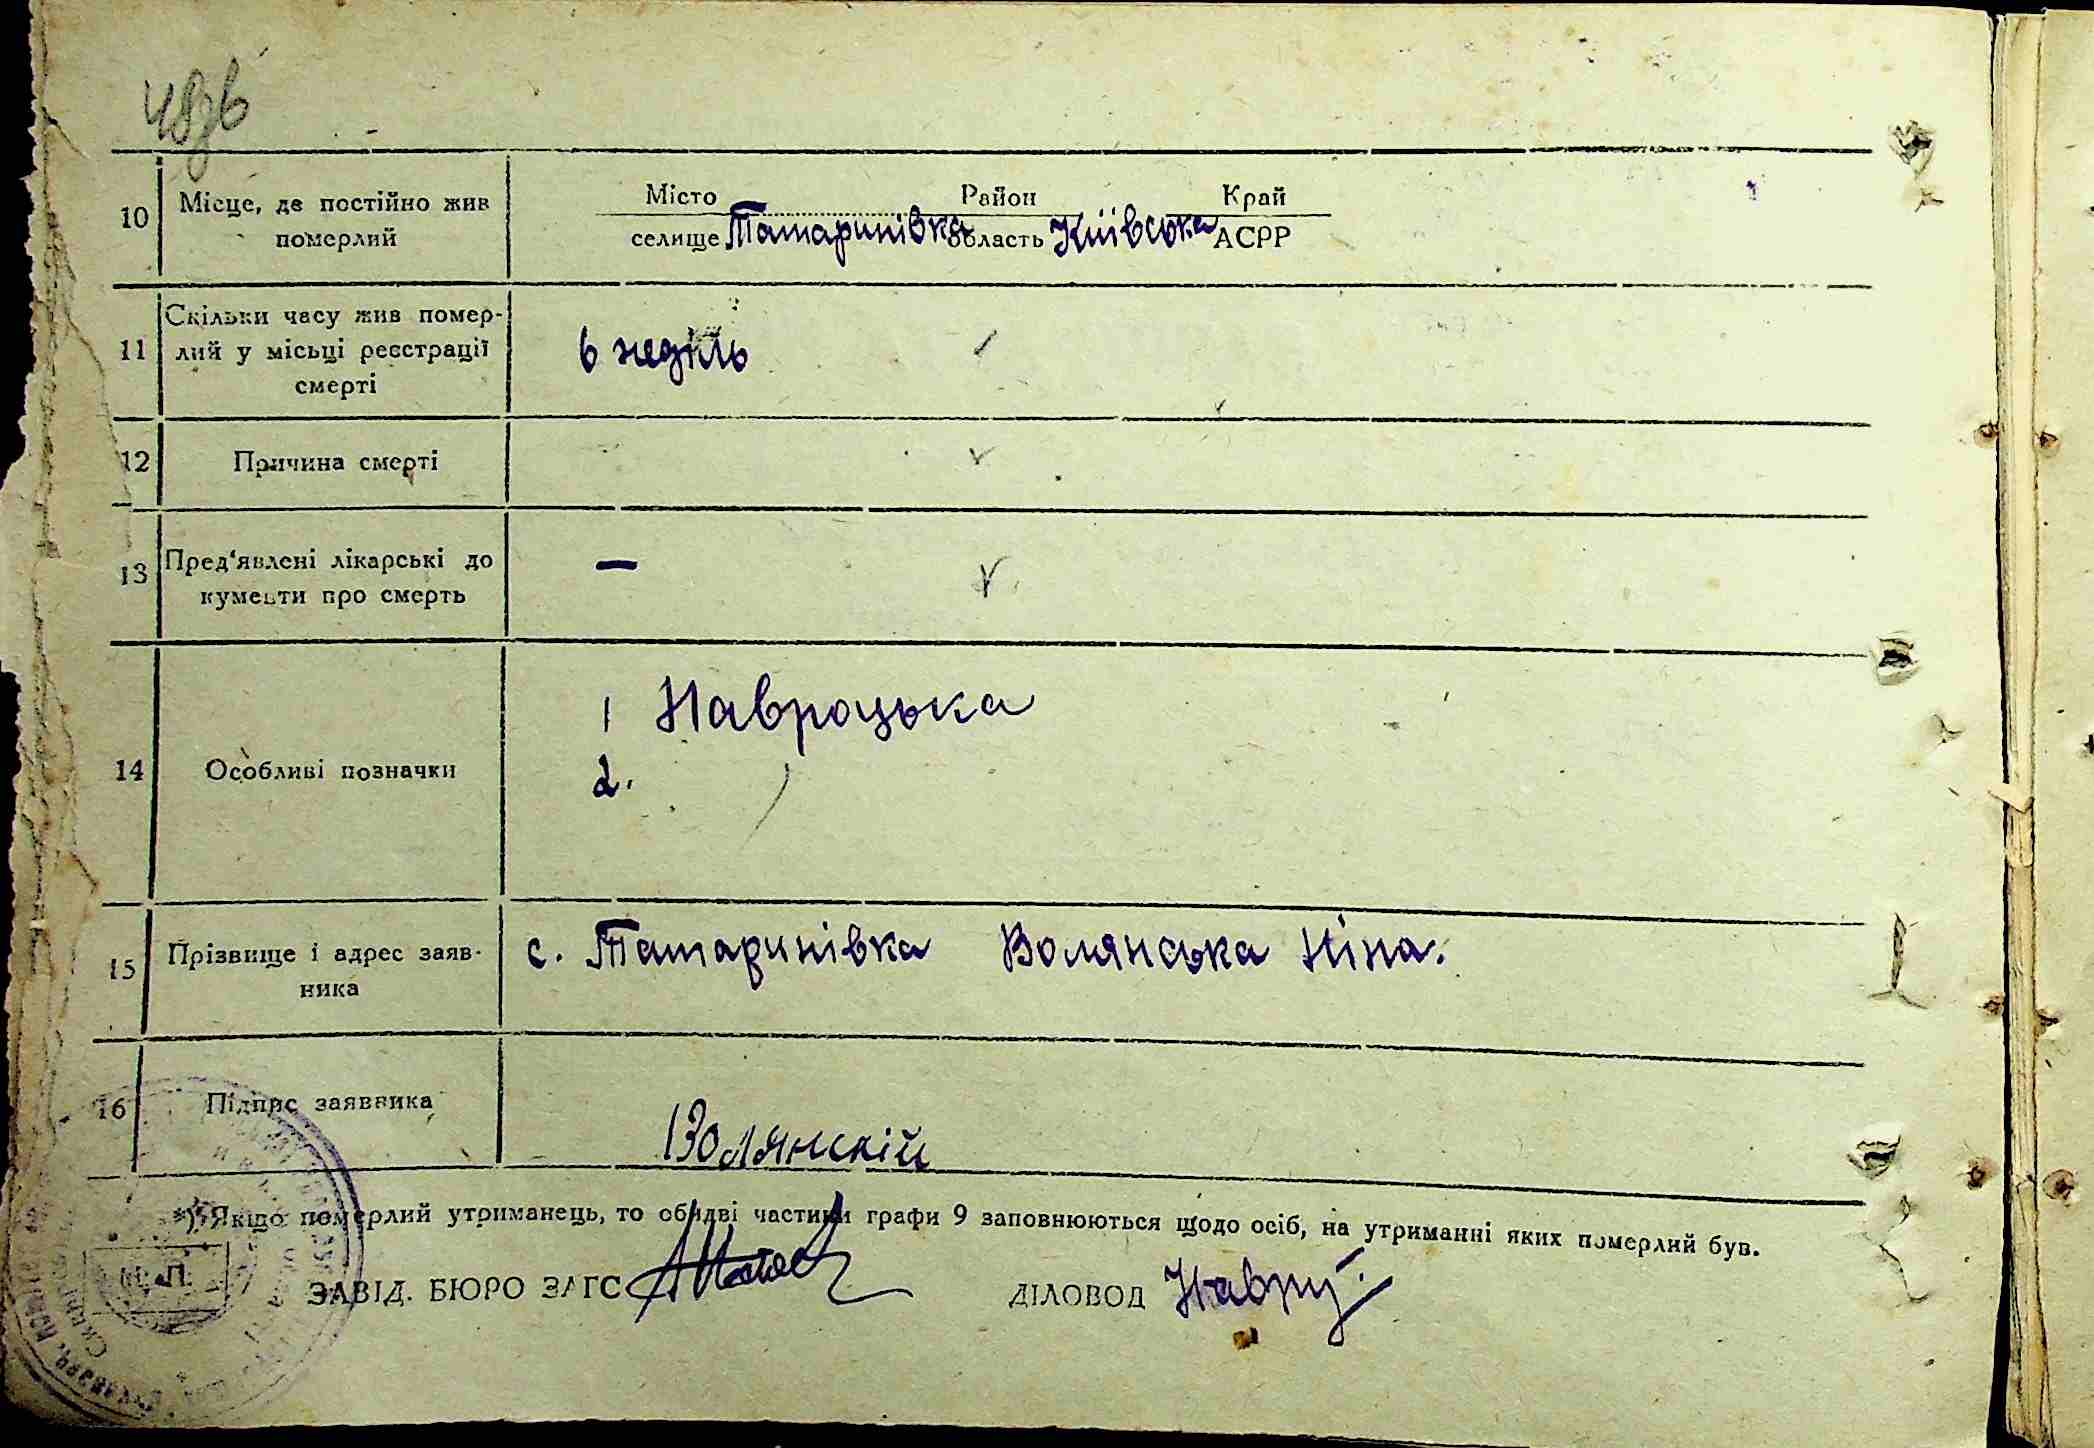 48зв
10 Місце, де постійно жив померлий
Місто Район Край
селище Татаринівка область Київська АСРР
11 Скільки часу жив помер-
лий у місьці реєстрації
смерті
6 неділь
12 Причина смерті
13 Пред'явлені лікарські до
кументи про смерть
—
14 Особливі позначки
1 Навроцька
2.
15 Прізвище і адрес заяв-
ника
с. Татаринівка Волянська Ніна.
16 Підпис заявника
Волянскій
*) Якщо померлий утриманець, то обидві частини графи 9 заповнюються щодо осіб, на утриманні яких померлий був.
М. П.
ЗАВІД. БЮРО ЗАГС ДІЛОВОД Навроц